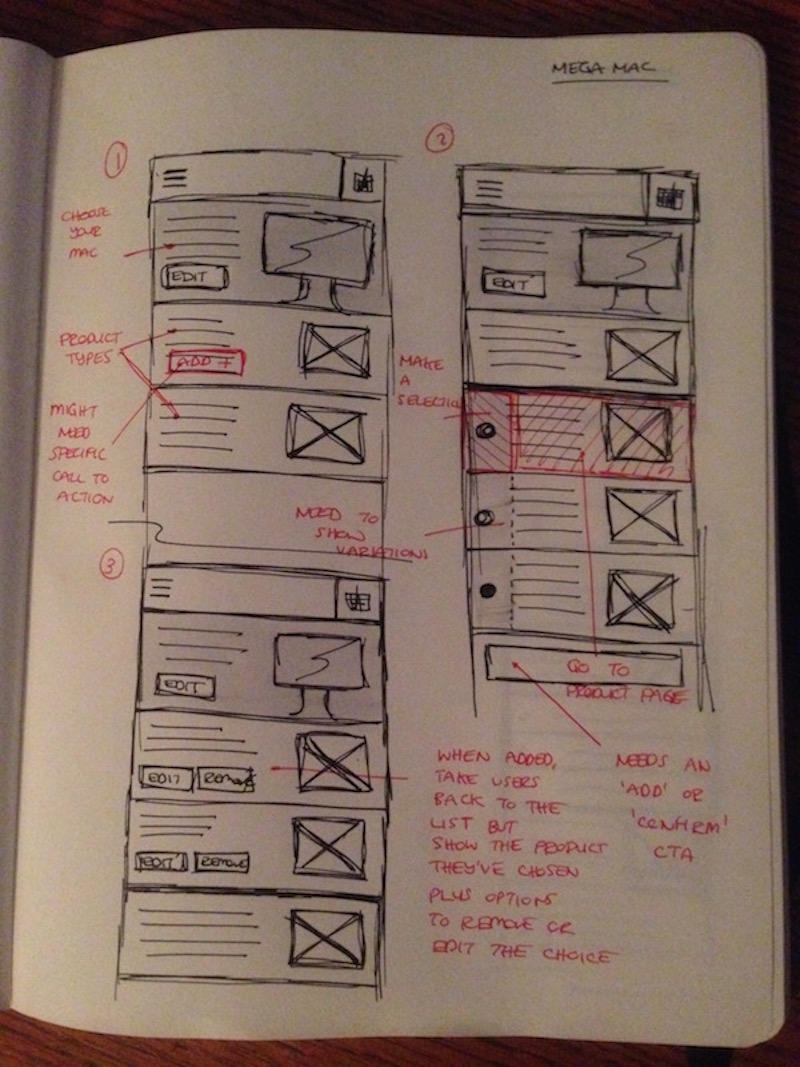 MEGA MAC
1
CHOOSE
YOUR
MAC
EDIT
PRODUCT
TYPES
ADD +
MIGHT
NEED
SPECIFIC
CALL TO
ACTION
2
EDIT
MAKE
A
SELECTION
NEED TO
SHOW
VARIATIONS
GO TO
PRODUCT PAGE
NEEDS AN
'ADD' OR
'CONFIRM'
CTA
3
EDIT
EDIT REMOVE
EDIT REMOVE
WHEN ADDED,
TAKE USERS
BACK TO THE
LIST BUT
SHOW THE PRODUCT
THEY'VE CHOSEN
PLUS OPTIONS
TO REMOVE OR
EDIT THE CHOICE